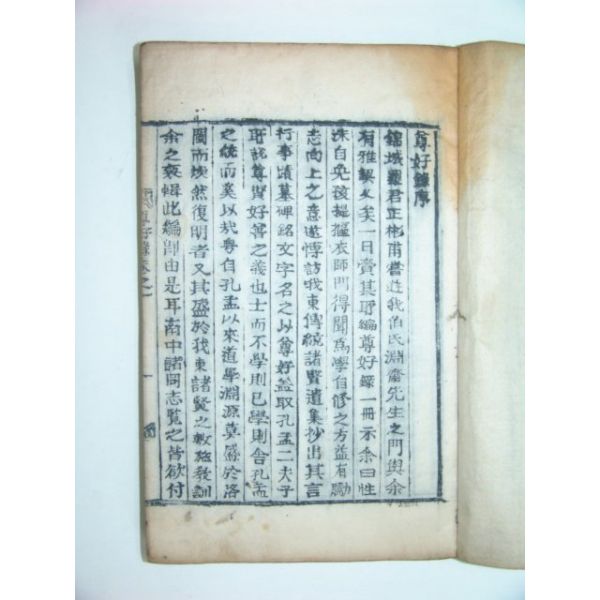 尊好錄序
錦城羅君正彬甫嘗遊我伯氏淵齋先生之門與余
有雅契久矣一日賫其所編尊好錄一冊示余曰性
洙自免孩提摳衣師門得聞爲學自修之方益有勵
志向上之意遂博訪我東傳統諸賢遺集抄出其言
行事蹟墓碑銘文字名之以尊好盖取孔孟二夫子
所託尊賢好善之義也士而不學則已學則舍孔孟
之統而奚以哉粤自孔孟以來道學淵源莫盛於洛
閩而煥然復明者又其盛於我東諸賢之敷施敎訓
余之裒輯此編卽由是耳南中諸同志覧之皆欲付
尊好錄卷之一
一